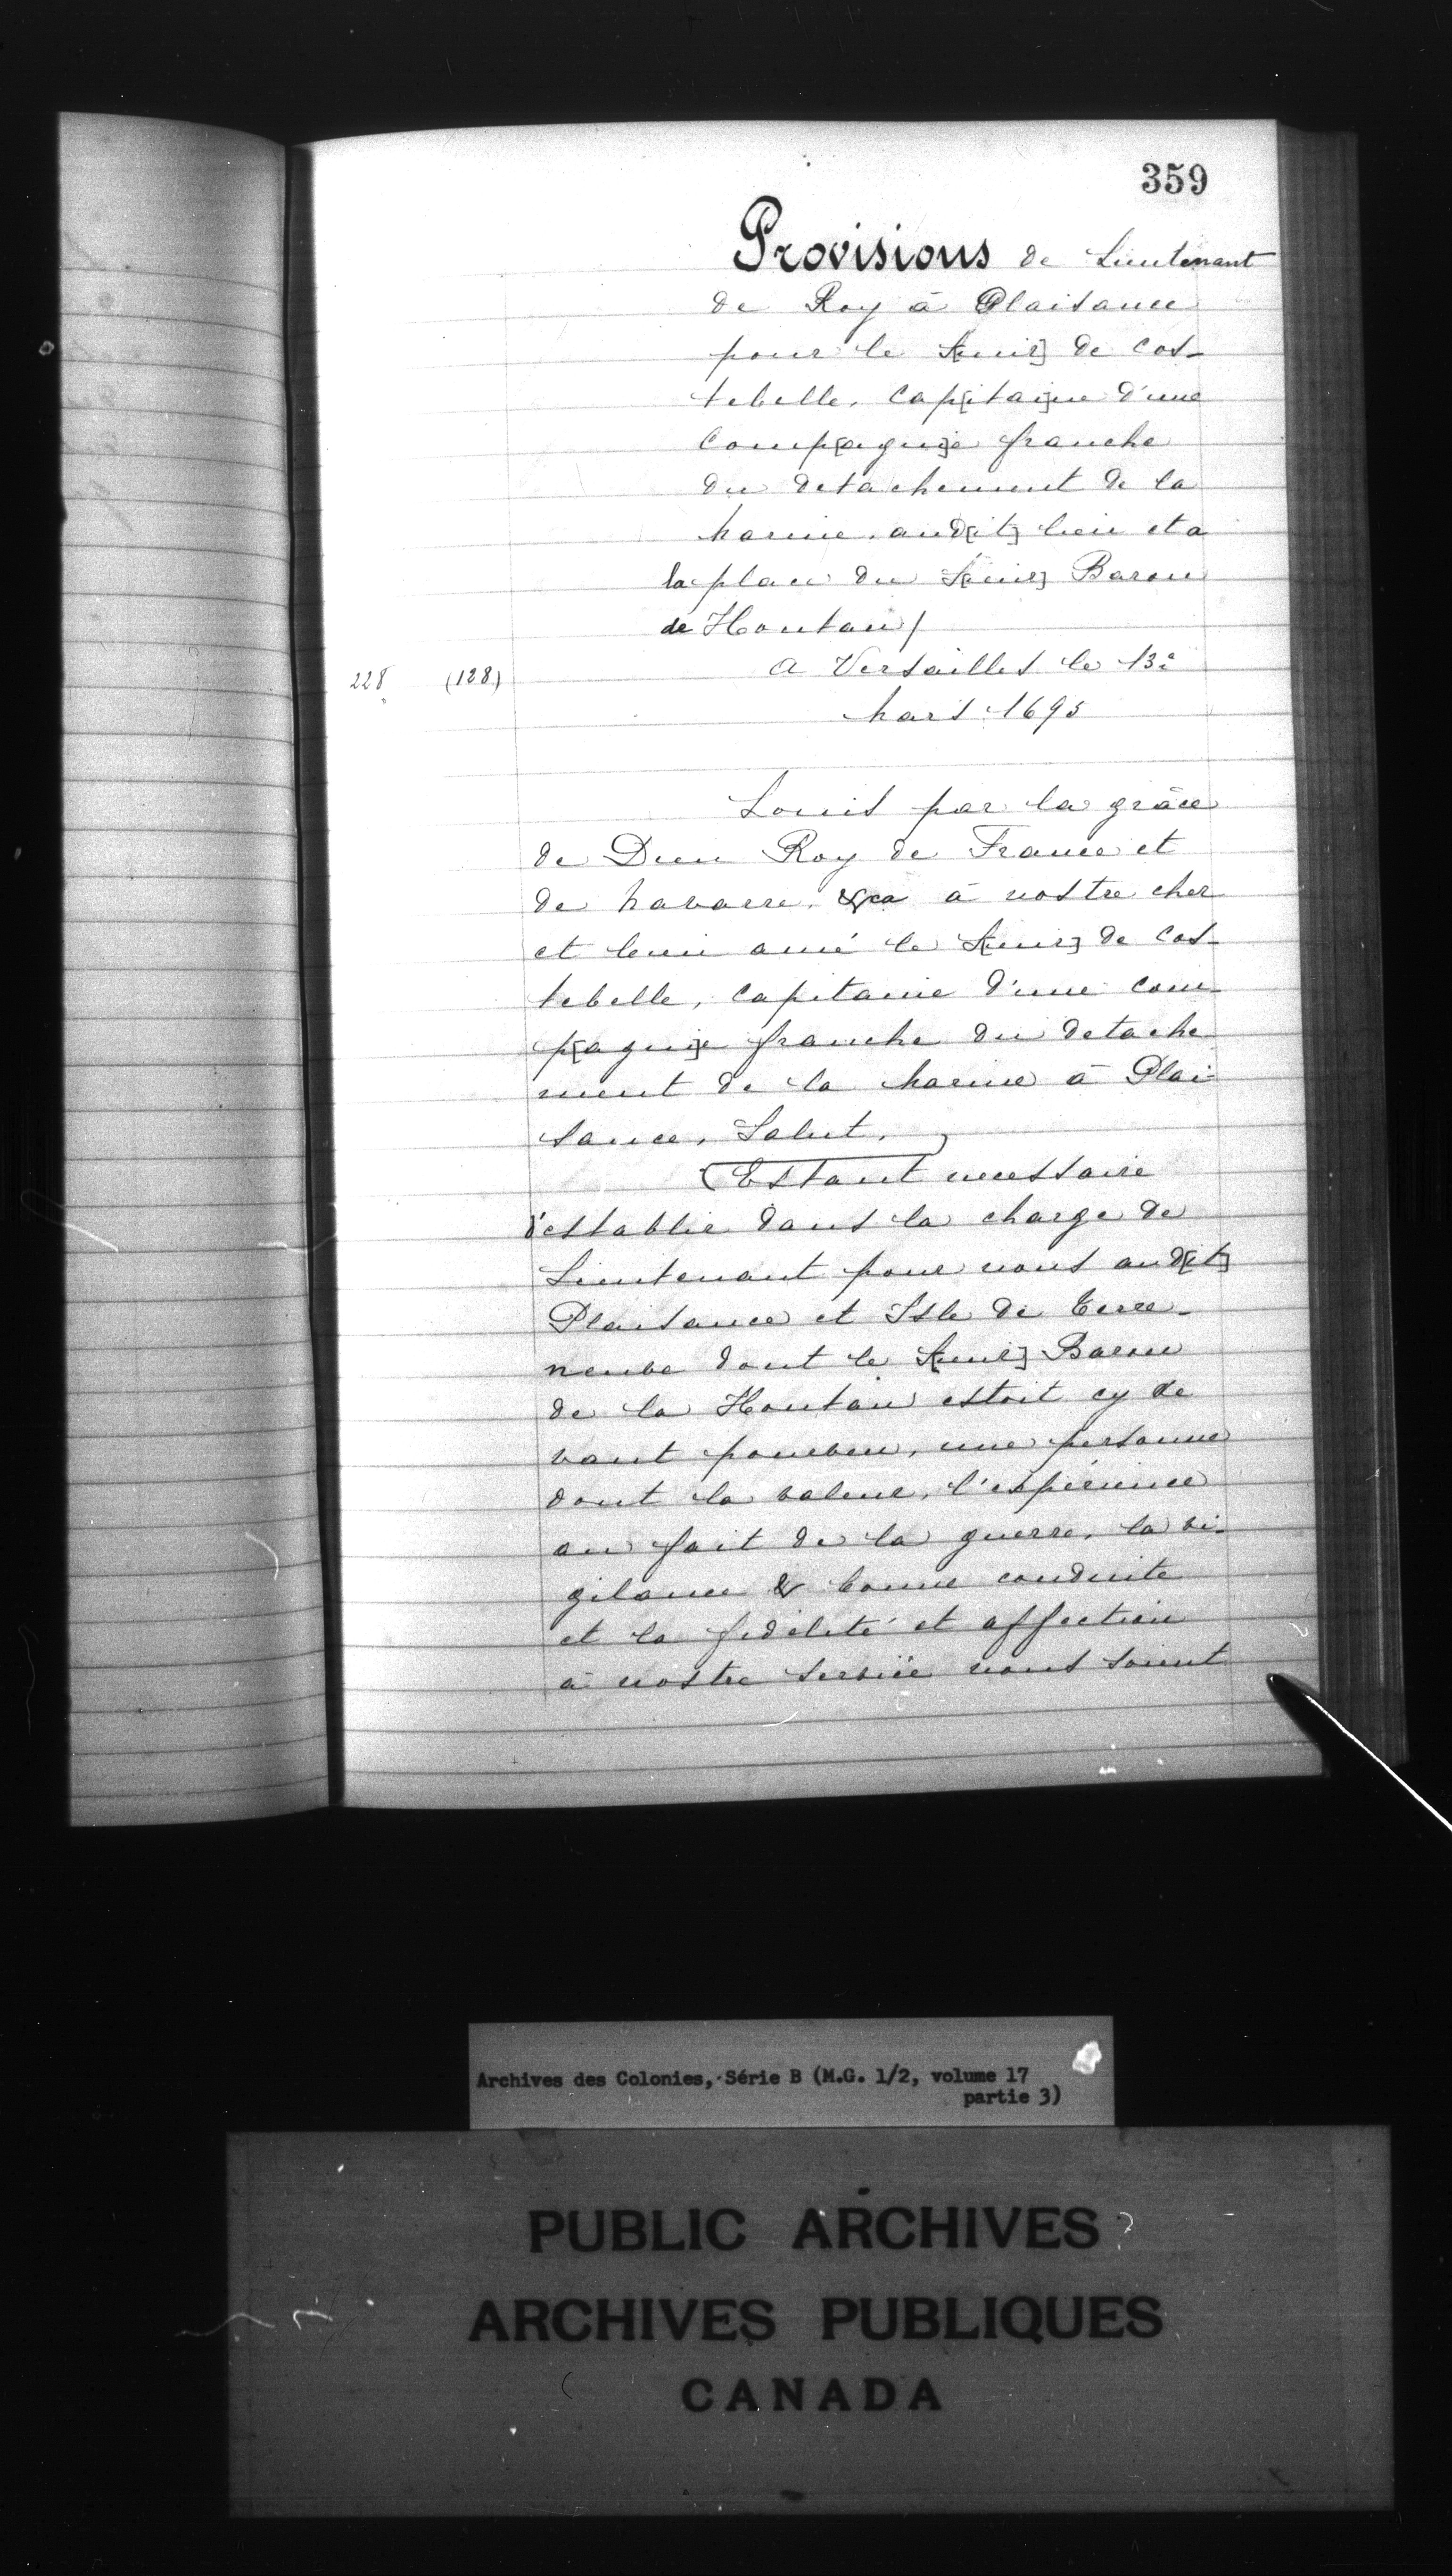 359
Provisions de Lieutenant
de Roy à Plaisance
pour le S[ieur] de Cos-
tebelle, Cap[itai]ne d'une
Comp[agni]e franche
du detachement de la
Marine, aud[it] lieu et a
la place du S[ieur] Baron
de Hontan/
228 (128) A Versailles le 13e
Mars 1695
Louis par la grâce
de Dieu Roy de France et
de Navarre, &ca à nostre cher
et bien amé le S[ieur] de Cos-
tebelle, Capitaine d'une com-
p[agni]e franche du detache-
ment de la Marine à Plai-
sance, Salut,
(Estant necessaire
d'establir dans la charge de
Lieutenant pour nous aud[it]
Plaisance et Isle de Terre-
neuve dont le S[ieur] Baron
de la Hontan estoit cy de
vant pourveu, une personne
dont la valeur, l'expérience
au fait de la guerre, la vi-
gilance & bonne conduite
et la fidélité et affection
à nostre service nous soient
Archives des Colonies, Série B (M.G. 1/2, volume 17
partie 3)
PUBLIC ARCHIVES
ARCHIVES PUBLIQUES
CANADA